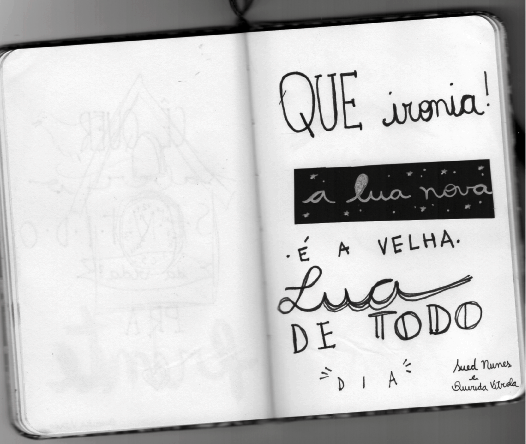 QUE ironia!
a lua nova
. É A VELHA.
Lua
DE TODO
DIA
Sued Nunes
e
Querida Vitrola